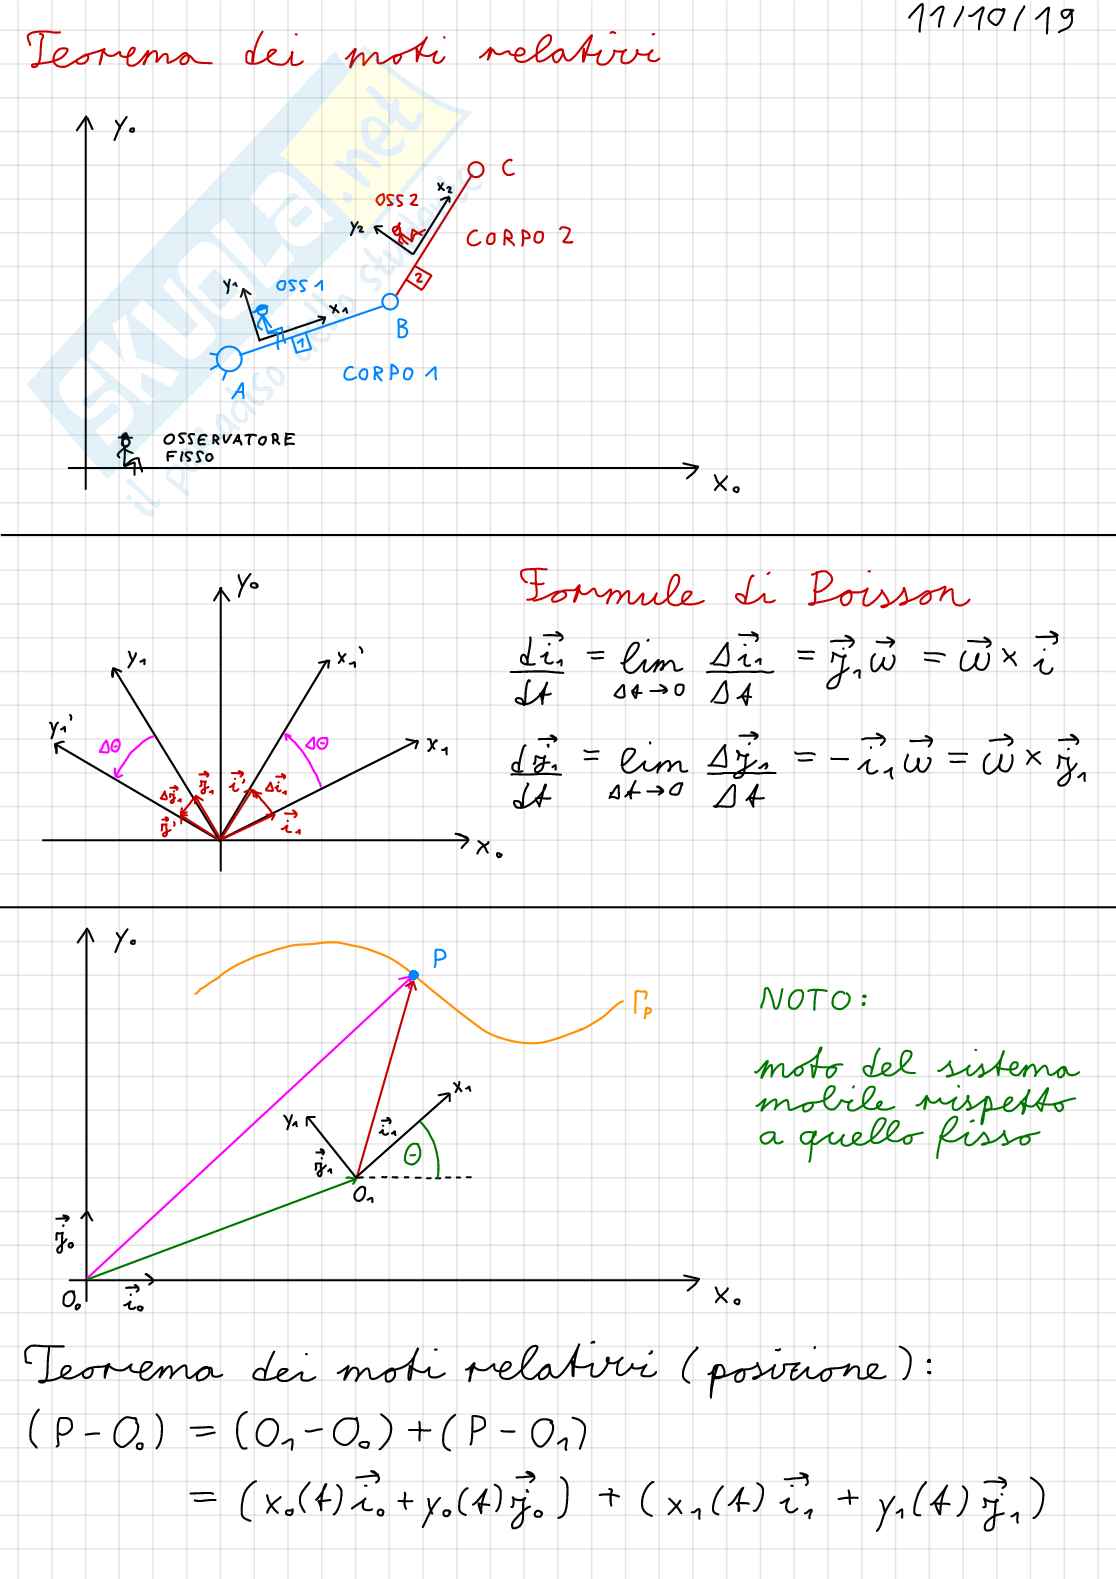 11/10/19
Teorema dei moti relativi
y₀
C
x₂
OSS 2
y₂
CORPO 2
2
y₁
OSS 1
x₁
B
1
CORPO 1
A
OSSERVATORE
FISSO
x₀
SKUOLA.net
il paradiso dello studente
Formule di Poisson
y₀
y₁
x₁'
y₁'
Δθ
Δθ
x₁
Δj⃗₁
j⃗₁
i⃗'
Δi⃗₁
j⃗'
i⃗₁
x₀
di⃗₁/dt = lim Δt→0 Δi⃗₁/Δt = j⃗₁ω⃗ = ω⃗ × i⃗
dj⃗₁/dt = lim Δt→0 Δj⃗₁/Δt = -i⃗₁ω⃗ = ω⃗ × j⃗₁
y₀
P
Γₚ
NOTO:
moto del sistema
mobile rispetto
a quello fisso
x₁
y₁
i⃗₁
j⃗₁
θ
O₁
j⃗₀
O₀
i⃗₀
x₀
Teorema dei moti relativi (posizione):
(P-O₀) = (O₁-O₀)+(P-O₁)
= (x₀(t)i⃗₀+y₀(t)j⃗₀) + (x₁(t)i⃗₁ + y₁(t)j⃗₁)